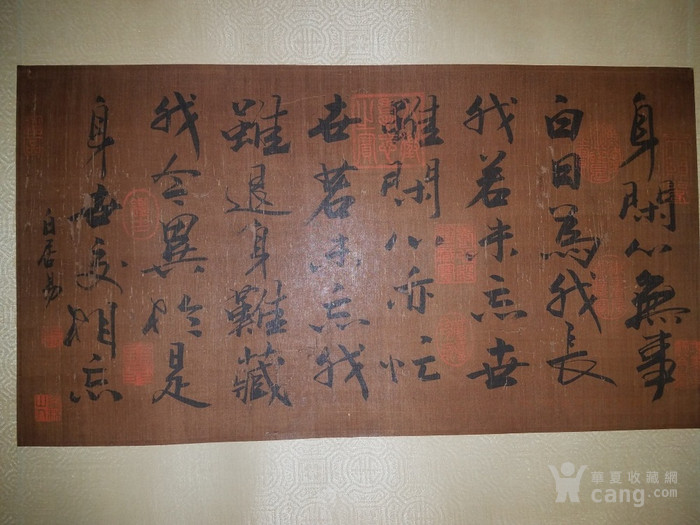 身閑心無事
白日為我長
我若未忘世
雖閑心亦忙
世若未忘我
雖退身難藏
我今異於是
身世交相忘
白居易
華夏收藏網
cang.com